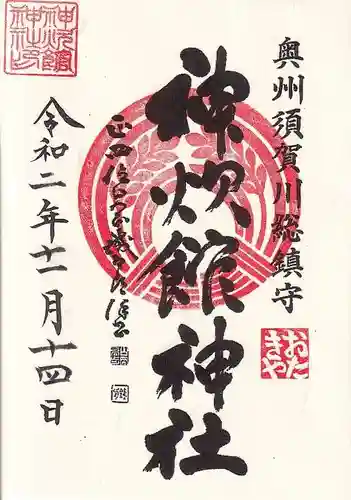 奥州須賀川総鎮守
神炊館神社
おた
きや
令和二年十一月十四日